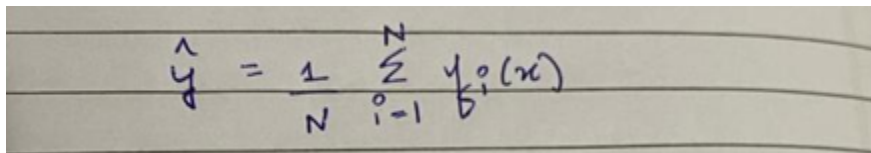 ŷ = 1/N Σ_{i=1}^{N} y_i(x)